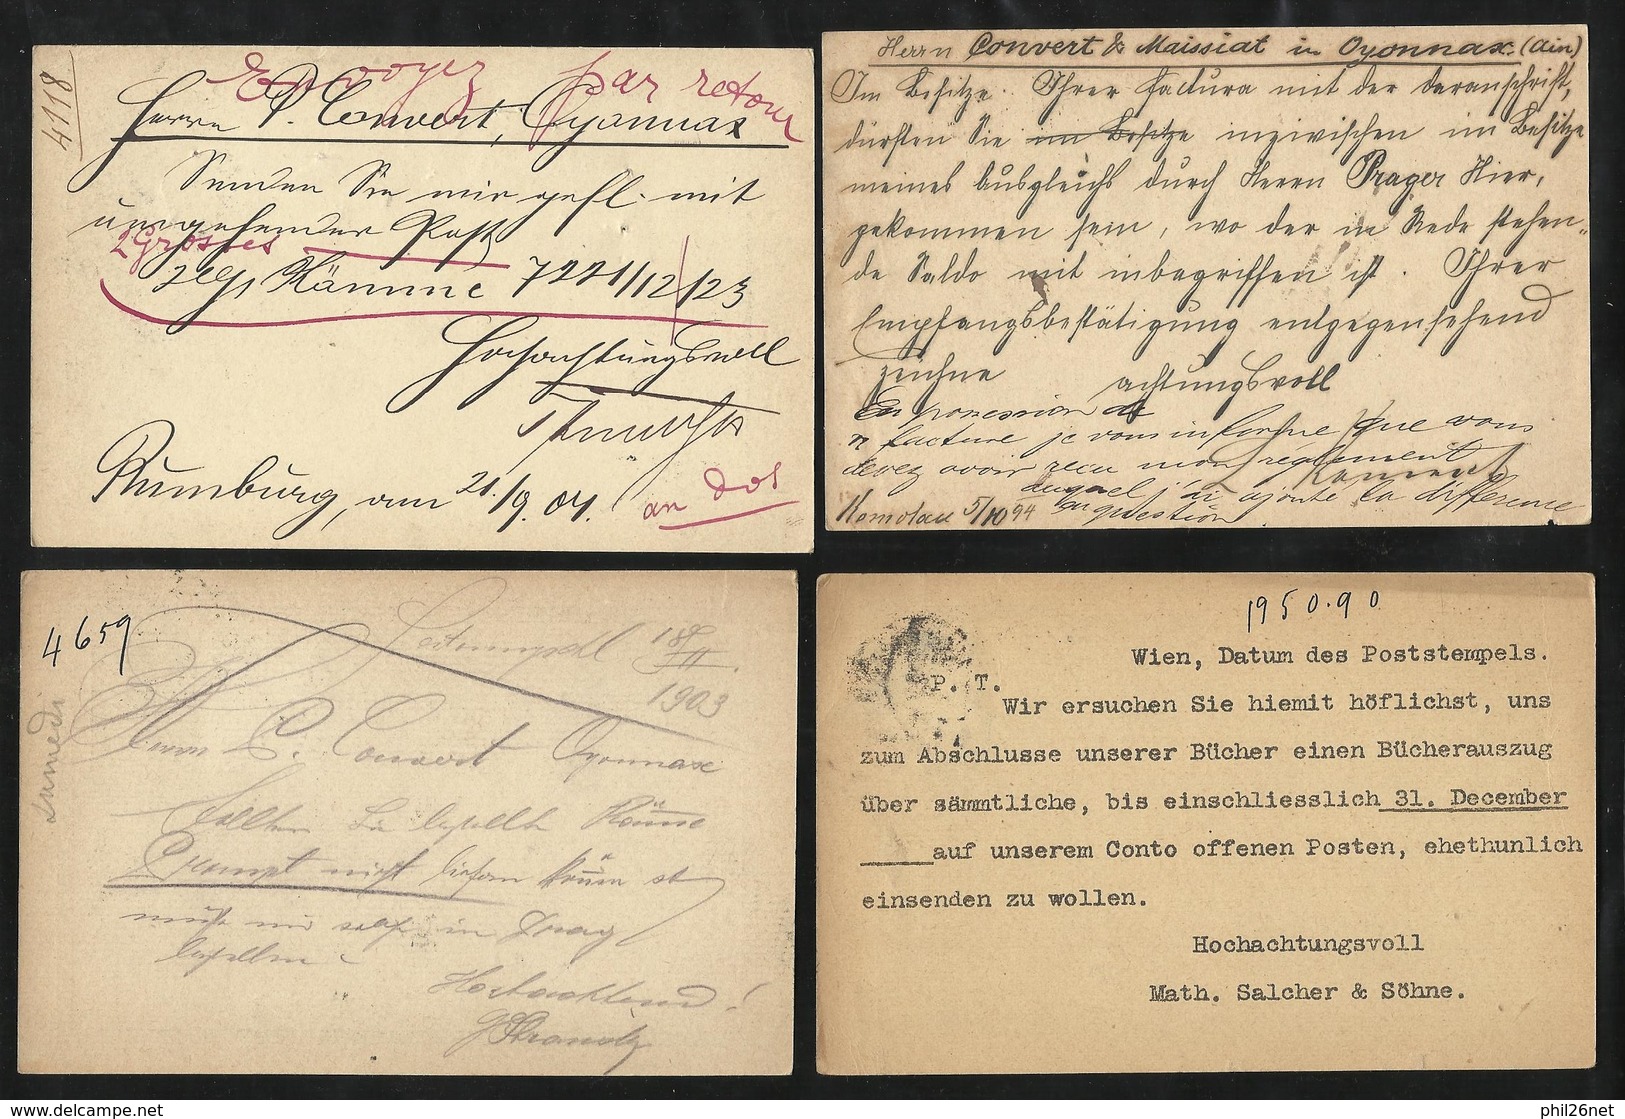 4118
Envoyez par retour
Herrn P. Convert, Oyonnax
Senden Sie mir gefl. mit
umgehender Post
2 Grosses
Kämme 7221/12/23
Hochachtungsvoll
Rumburg, am 21./9.04.
an dos
Herrn Convert & Maissiat in Oyonnax. (Ain)
Im Besitze Ihrer Factura mit der daranschrift,
dürften Sie im Besitze inzwischen im Besitze
meines Ausgleichs durch Herrn Prager Hier,
gekommen sein, wo der in Rede stehen-
de Saldo mit inbegriffen ist. Ihrer
Empfangsbestätigung entgegensehend
zeichne achtungsvoll
En possession de
v facture je vous informe que vous
devez avoir recu mon règlement
auquel j'ai ajouté la difference
en question
Komotau 5/10 94
4659
Samedi
18/III
1903
Herrn P. Convert Oyonnax
Sollten Sie bestellte Kämme
Prompt nicht liefern können so
in Prag
bestellen.
Hochachtend!
Wien, Datum des Poststempels.
1950.90
P. T.
Wir ersuchen Sie hiemit höflichst, uns
zum Abschlusse unserer Bücher einen Bücherauszug
über sämmtliche, bis einschliesslich 31. December
auf unserem Conto offenen Posten, ehethunlich
einsenden zu wollen.
Hochachtungsvoll
Math. Salcher & Söhne.
www.delcampe.net
phil26net